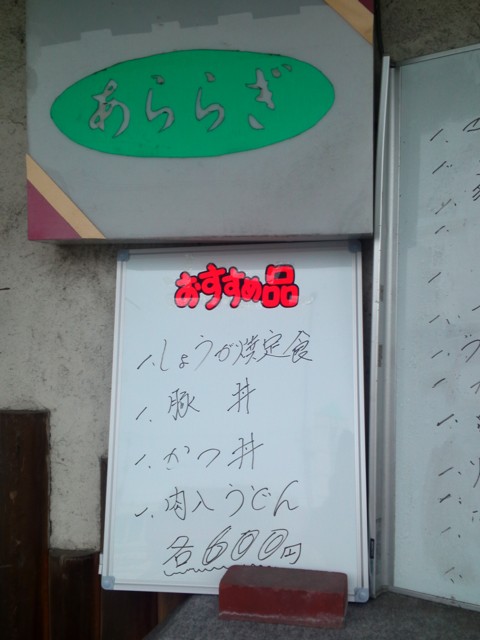 あららぎ
おすすめ品
一、しょうが焼定食
一、豚 丼
一、かつ丼
一、肉入うどん
各600円